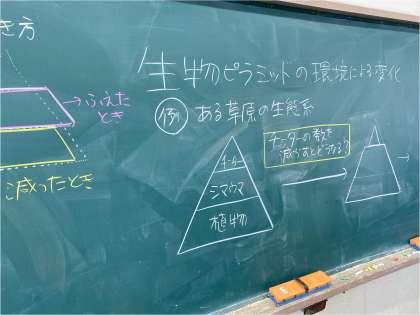 き方
→ふえた
とき
減ったとき
生物ピラミッドの環境による変化
例 ある草原の生態系
チーターの数を
減らすとどうなる?
チーター
シマウマ
植物